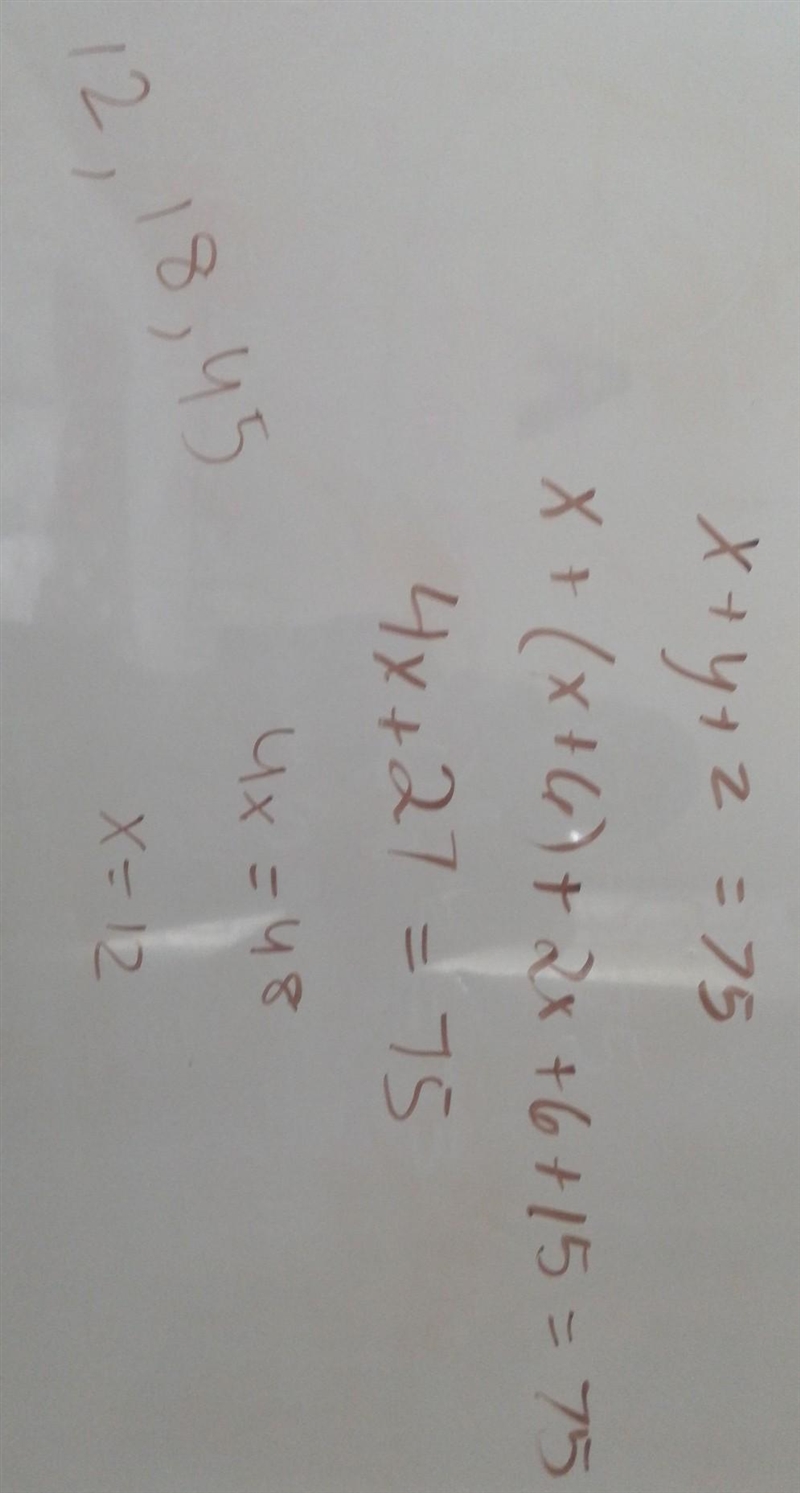 x + y + z = 75
x + (x + 6) + 2x + 6 + 15 = 75
4x + 27 = 75
4x = 48
x = 12
12, 18, 45